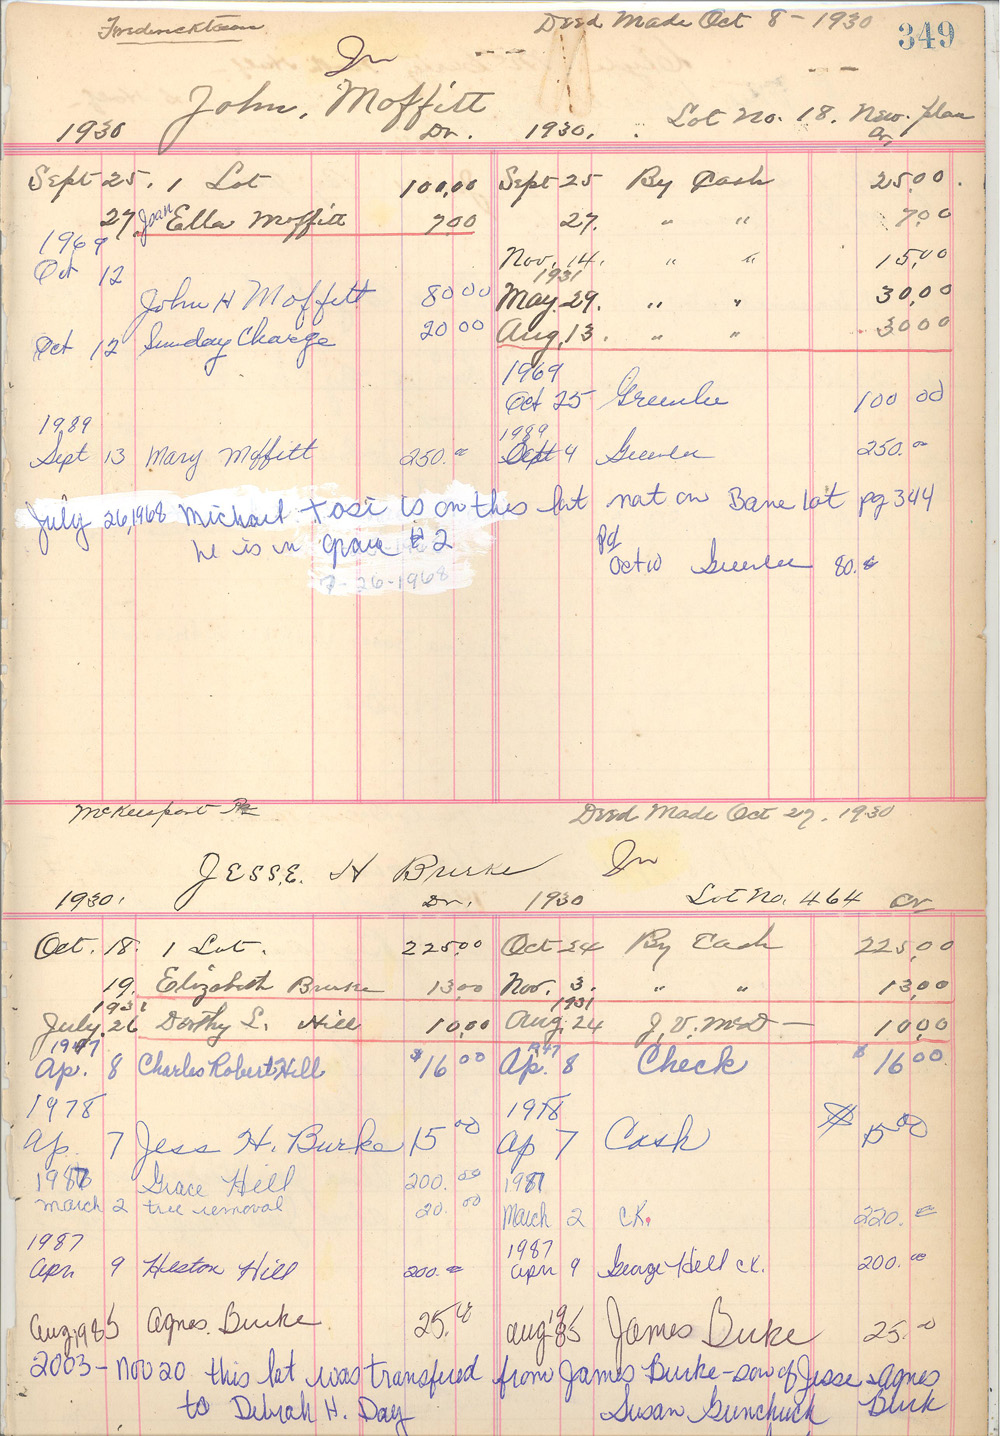 Fredericktown Deed Made Oct 8 - 1930 349
In
John, Moffitt
1930 Dr. 1930. Lot No. 18. New. plan Cr,
Sept 25. 1 Lot 100,00 Sept 25 By Cash 25 00.
27 Joan Ella Moffitt 7 00 27. " " 7 00
1969
Oct 12 Nov, 14. " " 15,00
1931
John H Moffitt 80 00 May 29. " " 30,00
Oct 12 Sunday Charge 20 00 Aug, 13. " " 30 00
1969
Oct 25 Greenlee 100 00
1989 1989
Sept 13 Mary Moffitt 250. 00 Sept 9 Greenlee 250. 00
July 26, 1968 Michael Tosi is on this lot not on Bane Lot pg 344
he is in grave # 2 pd
7-26-1968 Oct 10 Greenlee 80.
McKeesport Pa Deed Made Oct 27, 1930
JESSE. H Burke In
1930. Dr. 1930 Lot No. 464 Cr
Oct. 18. 1 Lot. 225 00 Oct 24 By Cash 225,00
19. Elizabeth Burke 13 00 Nov. 3. " " 13,00
1931 1931
July. 26 Dorthy L. Hill 10,00 Aug, 24 J, V. McD — 10,00
1947 1947
Ap. 8 Charles Robert Hill $16 00 Ap. 8 Check $16 00
1978 1978
Ap. 7 Jess H. Burke 15 00 Ap 7 Cash $ 15 00
1987 Grace Hill 200. 00 1987
March 2 tree removal 20. 00 March 2 CK. 220.
1987 1987
Apr 9 Heston Hill 200. Apr 9 George Hill CK. 200. 00
Aug, 1985 Agnes. Burke 25. 00 Aug 1985 James Burke 25. 00
2003 - Nov 20 this lot was transfered from James Burke - son of Jesse & Agnes
to Debrah H. Day Susan Gunchuck Burk